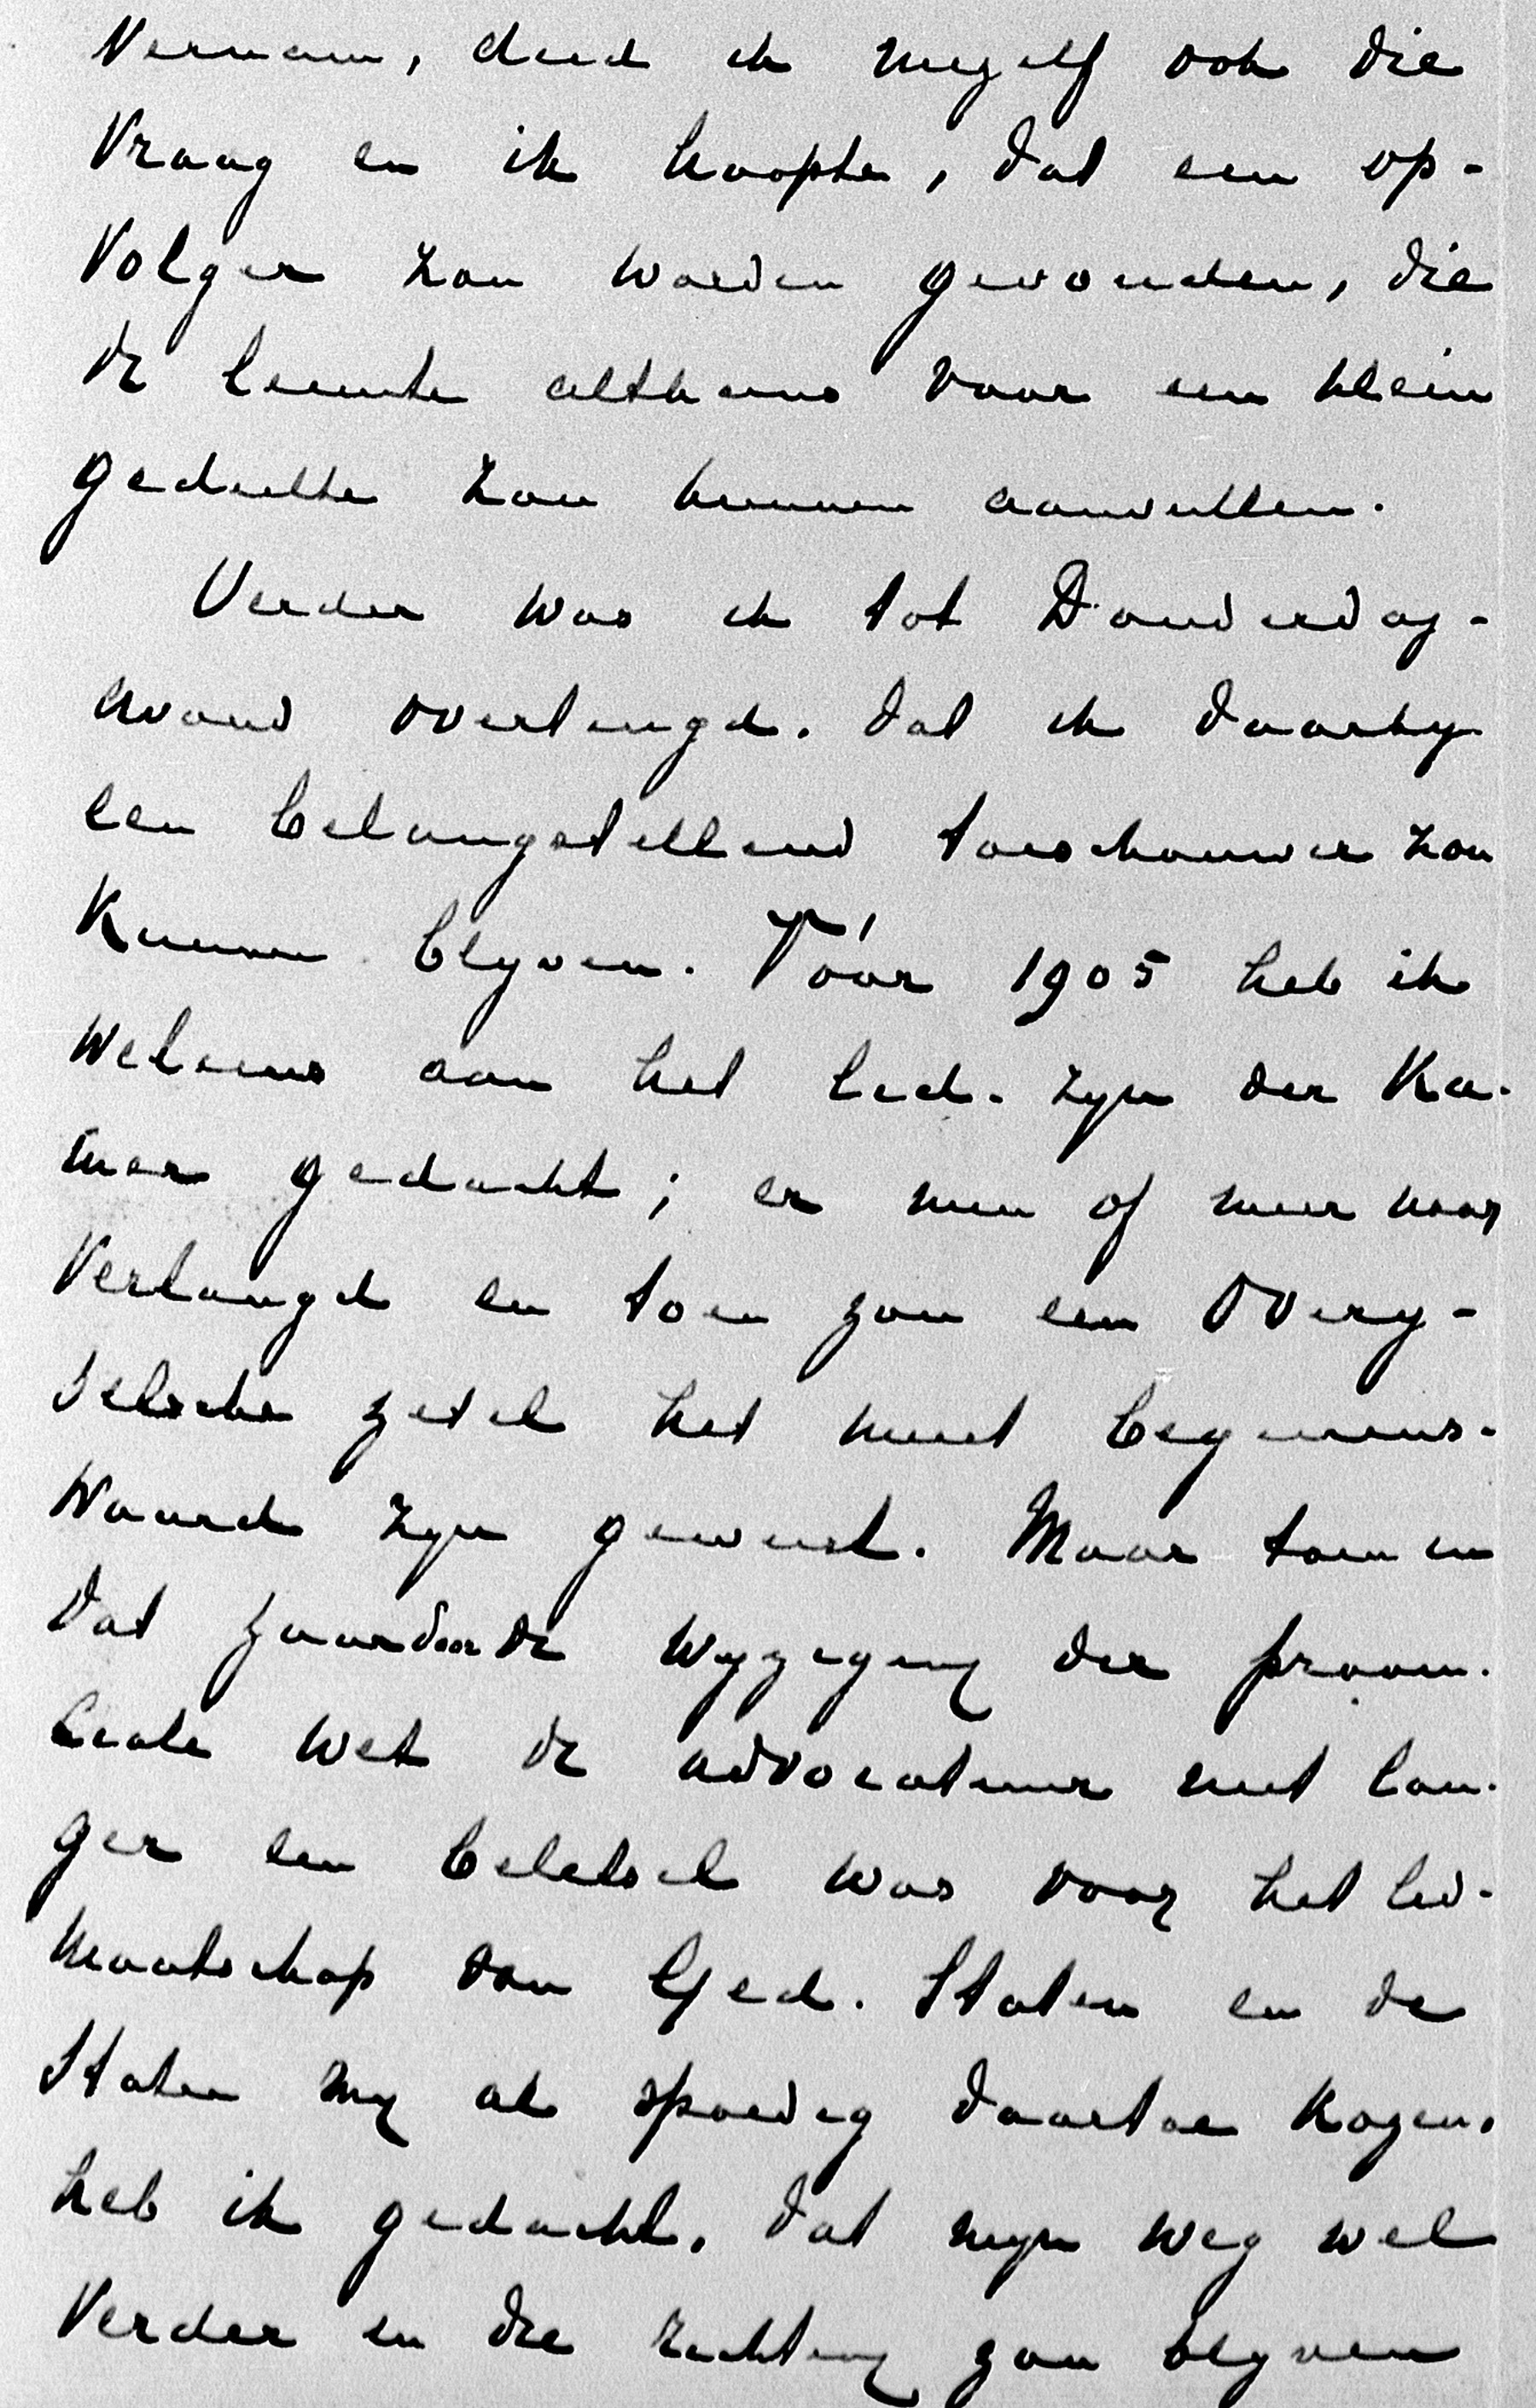 vernam, deed ik mijzelf ook die
vraag en ik hoopte, dat een op-
volger zou worden gevonden, die
de leemte althans voor een klein
gedeelte zou kunnen aanvullen.
Verder was ik tot Donderdag-
avond overtuigd, dat ik daarbij
een belangstellend toeschouwer zou
kunnen blijven. Vóór 1905 heb ik
weleens aan het lid-zijn der Ka-
mer gedacht; er min of meer naar
verlangd en toen zou een Overij-
selsche zetel het meest begeerens-
waard zijn geweest. Maar toen in
dat jaar door de wijziging der provin-
ciale wet de advocatuur niet lan-
ger een beletsel was voor het lid-
maatschap van Ged. Staten en de
Staten mij al spoedig daartoe kozen,
heb ik gedacht, dat mijn weg wel
verder in die richting zou blijven